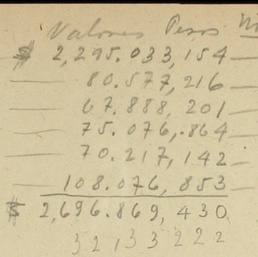 Valores Pesos
$ 2,295.033,154 —
— 80.577,216 —
— 67.888,201 —
— 75.076,864 —
— 70.217,142 —
— 108.076,853 —
$ 2,696.869,430
3 2 1 3 3 2 2 2